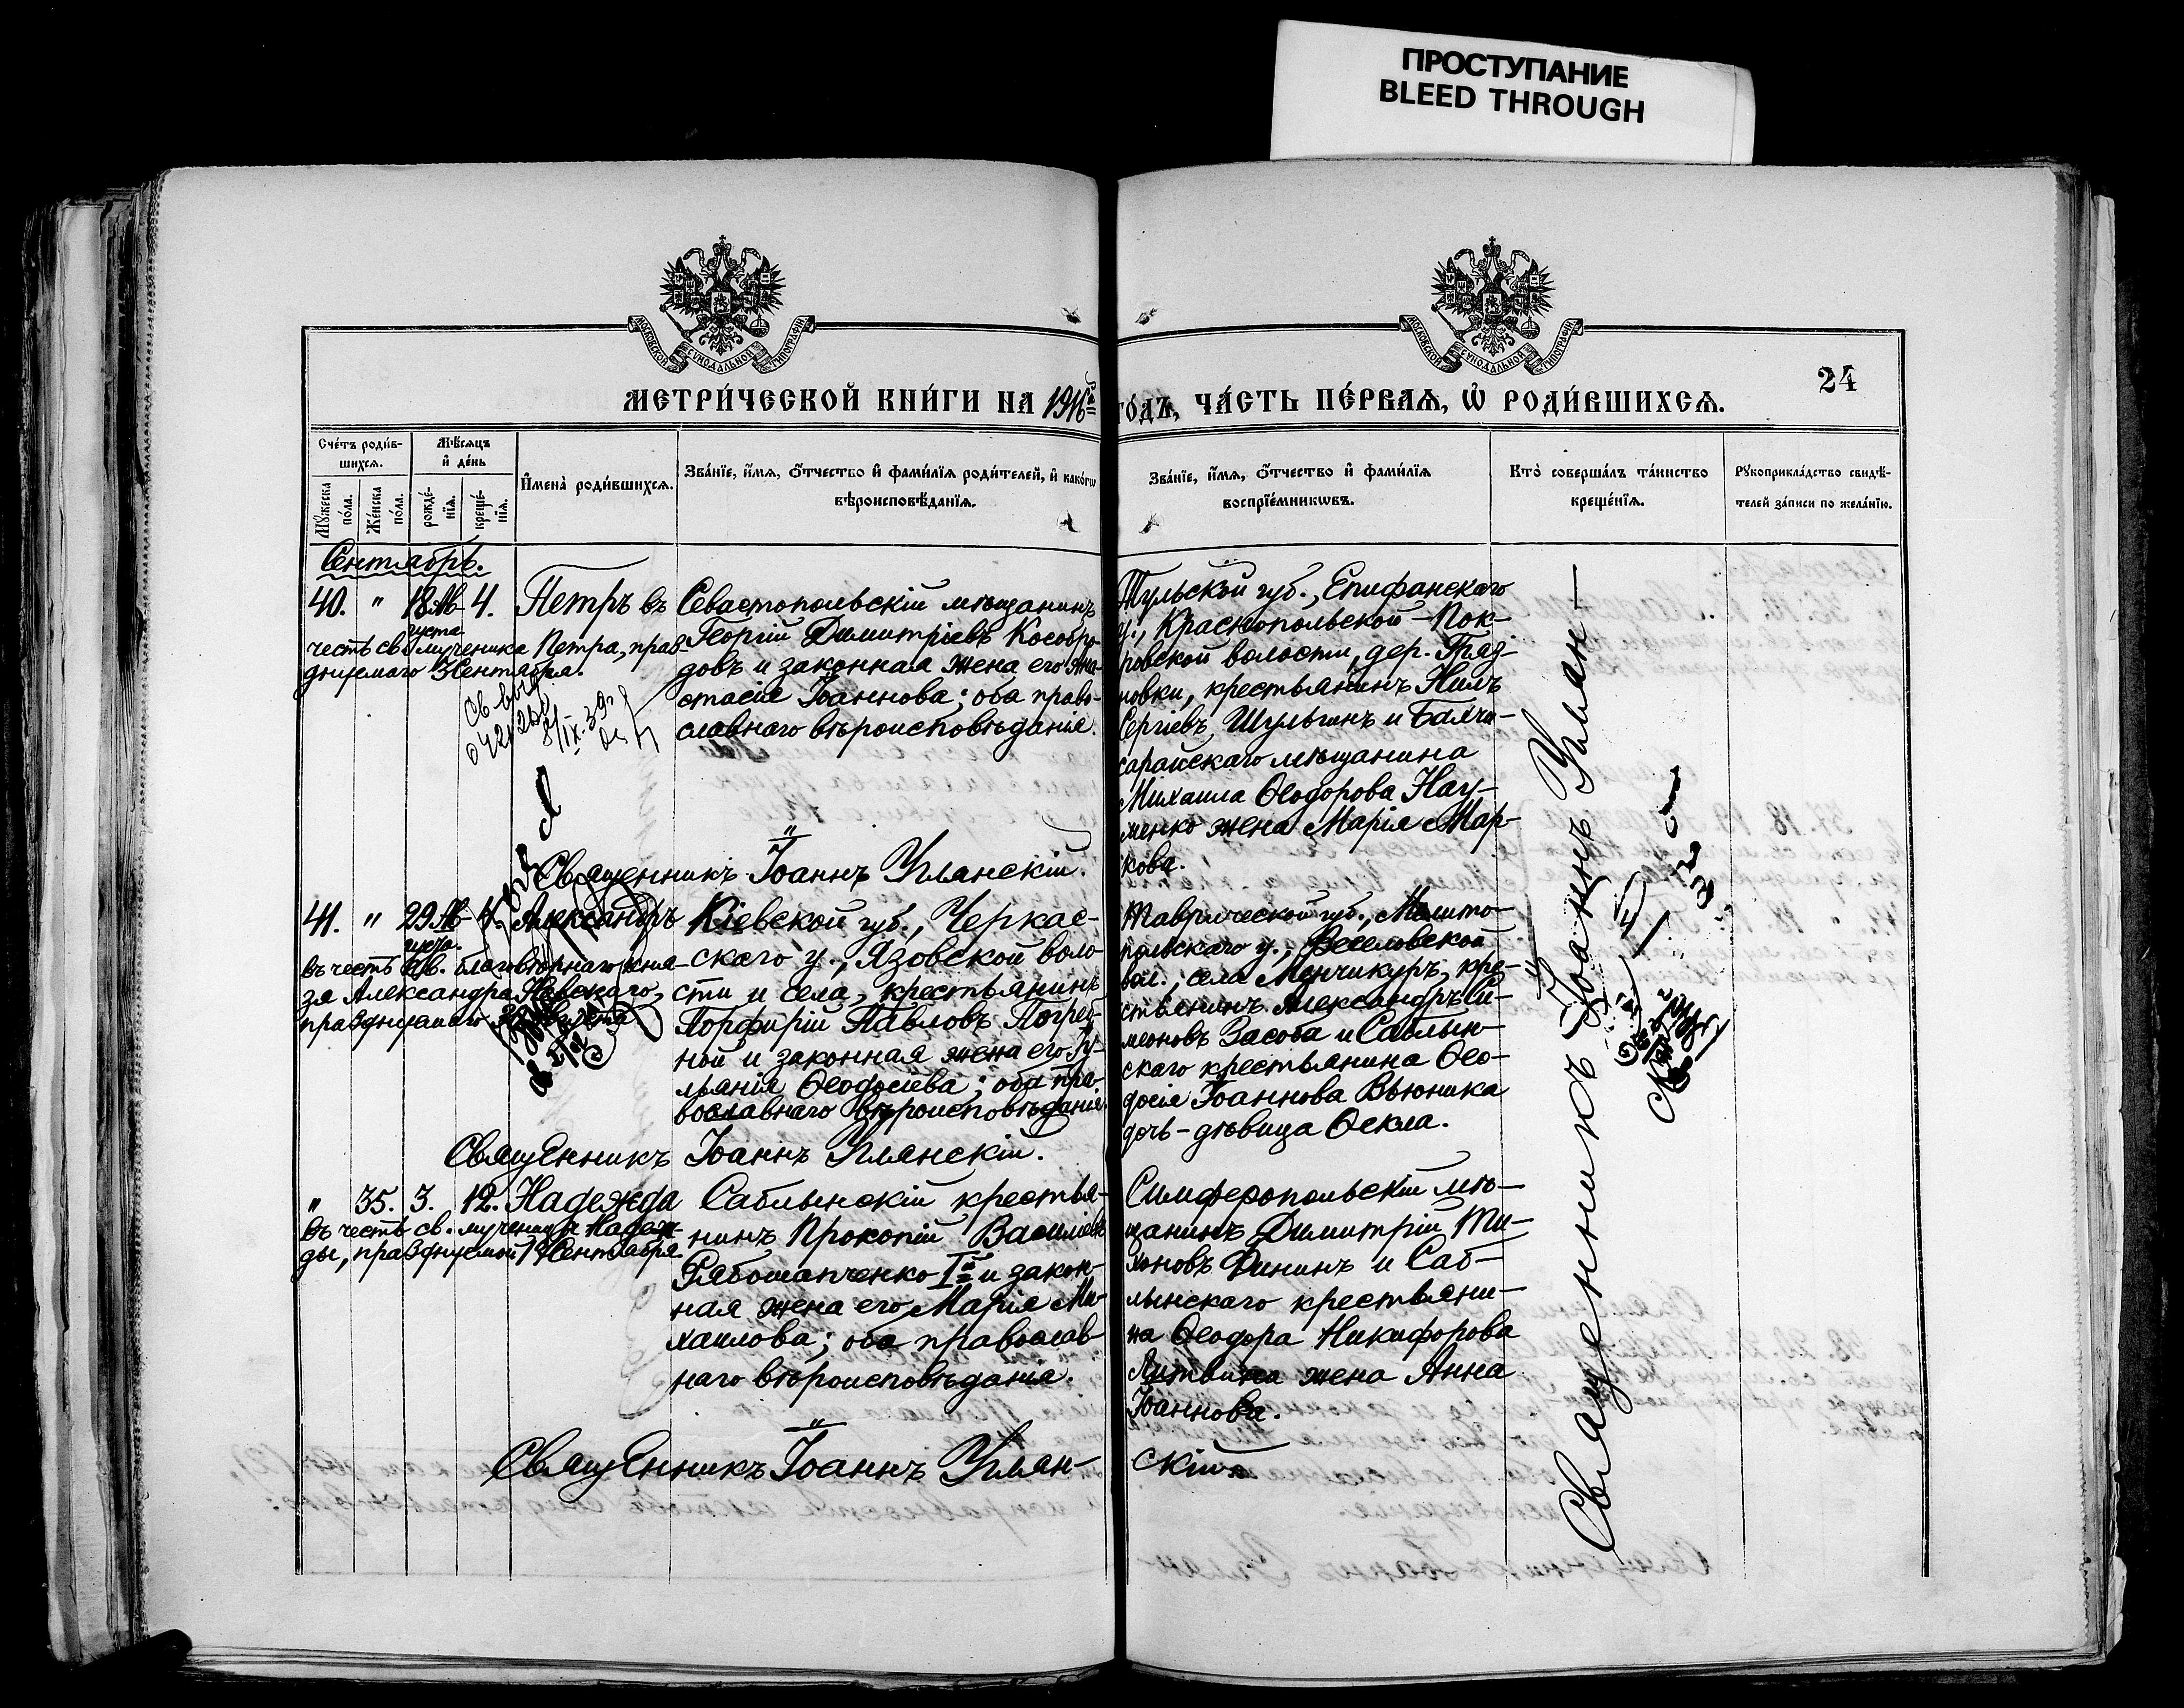 ПРОСТУПАНИЕ
BLEED THROUGH
МОСКОВСКОЙ СѴНОДАЛЬНОЙ ТИПОГРАФІИ
МОСКОВСКОЙ СѴНОДАЛЬНОЙ ТИПОГРАФІИ
24
МЕТРИ́ЧЕСКОЙ КНИ́ГИ НА 1916 ГО́ДЪ, ЧА́СТЬ ПЕ́РВАѦ, Ѡ҆ РОДИ́ВШИХСѦ.
Сче́тъ роди́в-
шихсѧ.
Мѣ́сѧцъ
и҆ де́нь
Мꙋ́жеска
по́ла.
Же́нска
по́ла.
рожде́-
нїѧ.
креще́-
нїѧ.
И҆мена̀ роди́вшихсѧ.
Зва́нїе, и҆́мѧ, ѻ҆́тчество и҆ фами́лїѧ роди́телей, и҆ како́гѡ
вѣроисповѣ́данїѧ.
Зва́нїе, и҆́мѧ, ѻ҆́тчество и҆ фами́лїѧ
воспрїе́мникѡвъ.
Кто̀ соверша́лъ та́инство
креще́нїѧ.
Рꙋкоприкла́дство свидѣ́-
телей за́писи по жела́нїю.
Сентябрь.
40. " 18 Ав- 4. Петръ въ
густа
честь св. мученика Петра, празд-
днуемаго 3 Сентября.
Севастопольскій мѣщанинъ
Георгій Димитріевъ Кособро-
довъ и законная жена его Ана-
стасія Іоаннова; оба право-
славнаго вѣроисповѣданія.
Священникъ Іоаннъ Углянскій.
Тульской губ., Епифанскаго
у., Краснопольской-Пок-
ровской волости, дер. Гряз-
новки, крестьянинъ Нилъ
Сергіевъ Шульгинъ и Бахчи-
сарайскаго мѣщанина
Михаила Ѳеодорова Нау-
менко жена Марія Мар-
кова.
41. " 29 Ав- 4. Александръ
густа.
въ честь св. благовѣрнаго кня-
зя Александра Невскаго,
празднуемаго
Кіевской губ., Черкас-
скаго у., Язовской воло-
сти и села, крестьянинъ
Порфирій Павловъ Погреб-
ной и законная жена его Іу-
ліанія Ѳеодосіева; оба пра-
вославнаго вѣроисповѣданія.
Священникъ Іоаннъ Углянскій.
Таврической губ., Мелито-
польскаго у., Веселовской
вол., села Менчикуръ, кре-
стьянинъ Александръ Си-
меоновъ Засоба и Саблын-
скаго крестьянина Ѳео-
досія Іоаннова Вьюника
дочь-дѣвица Ѳекла.
" 35. 3. 12. Надежда
въ честь св. мученицы Надеж-
ды, празднуемой 17 Сентября.
Саблынскій крестья-
нинъ Прокопій Васильевъ
Рябошапченко Iй и закон-
ная жена его Марія Ми-
хаилова; оба православ-
наго вѣроисповѣданія.
Симферопольскій мѣ-
щанинъ Димитрій Ти-
хоновъ Дининъ и Саб-
лынскаго крестьяни-
на Ѳеодора Никифорова
Литвина жена Анна
Іоаннова.
Священникъ Іоаннъ Углян-
скій
Священникъ Іоаннъ Углян-